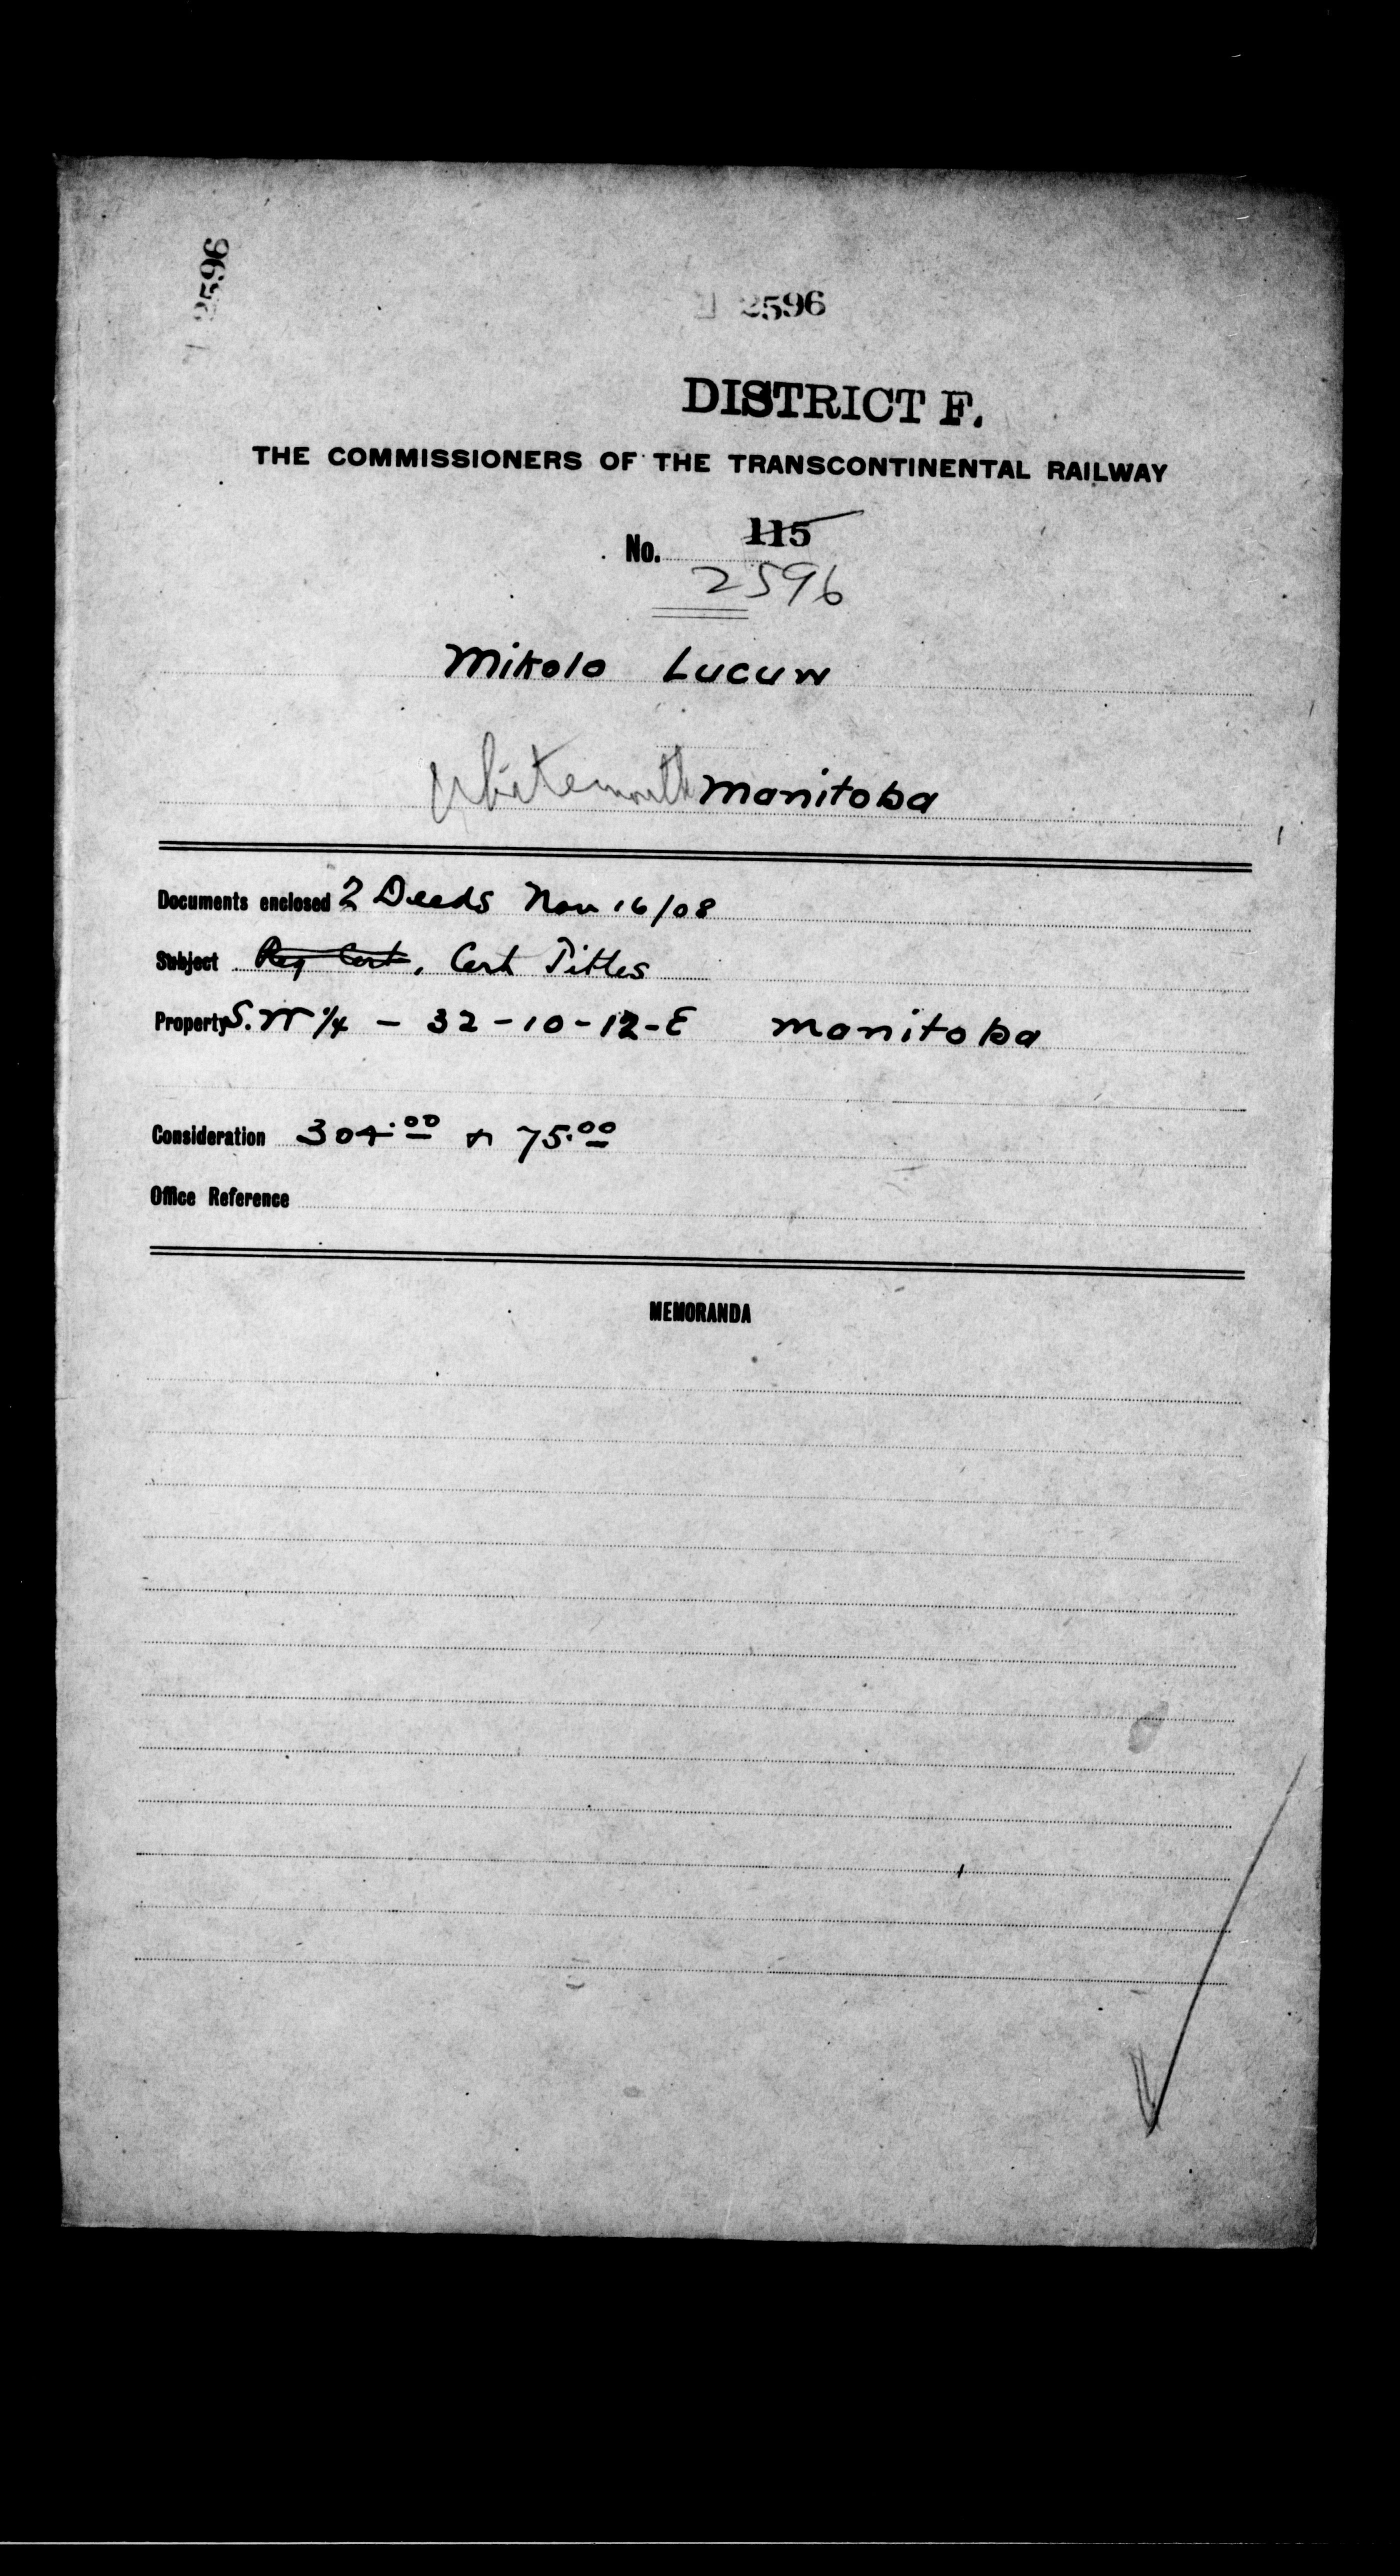 2596
2596
DISTRICT F.
THE COMMISSIONERS OF THE TRANSCONTINENTAL RAILWAY
No. 115
2596
Mikolo Lucuw
Whitemouth Manitoba
Documents enclosed 2 Deeds Nov 16/08
Subject Reg Cert, Cert Titles
Property S.W 1/4 - 32-10-12-E Manitoba
Consideration 304.00 & 75.00
Office Reference
MEMORANDA